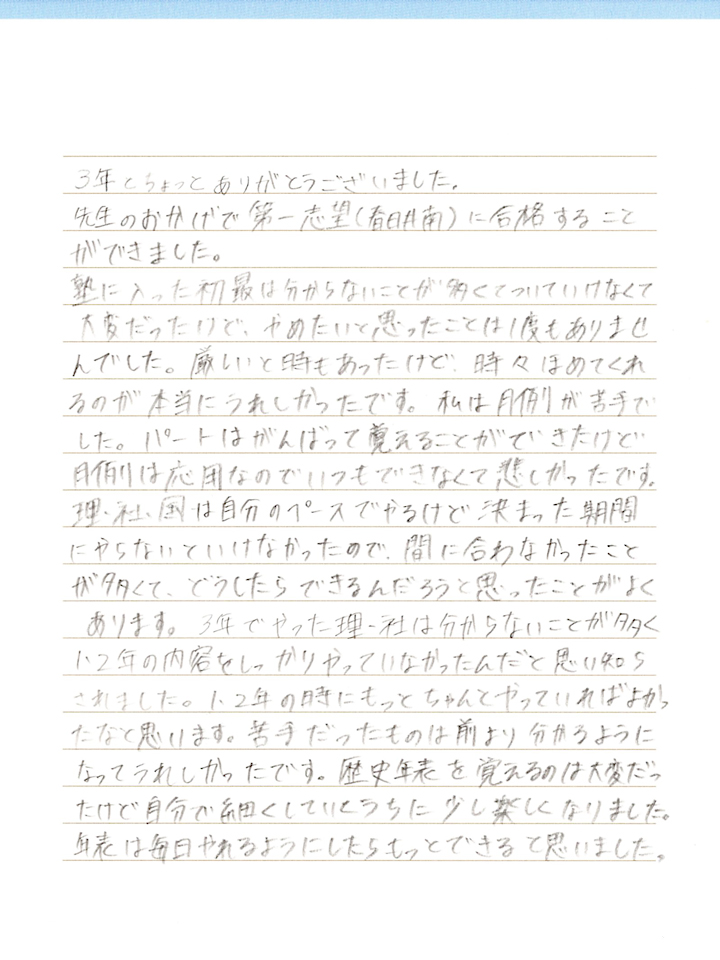 3年とちょっとありがとうございました。
先生のおかげで第一志望(春日井南)に合格すること
ができました。
塾に入った初最は分からないことが多くてついていけなくて
大変だったけど、やめたいと思ったことは1度もありませ
んでした。厳しいと時もあったけど、時々ほめてくれ
るのが本当にうれしかったです。私は月例が苦手で
した。パートはがんばって覚えることができたけど
月例は応用なのでいつもできなくて悲しかったです。
理・社・国は自分のペースでやるけど決まった期間
にやらないといけなかったので、間に合わなかったこと
が多くて、どうしたらできるんだろうと思ったことがよく
あります。3年でやった理・社は分からないことが多く
1・2年の内容をしっかりやっていなかったんだと思い知ら
されました。1・2年の時にもっとちゃんとやっていればよかっ
たなと思います。苦手だったものは前より分かるように
なってうれしかったです。歴史年表を覚えるのは大変だっ
たけど自分で細くしていくうちに少し楽しくなりました。
年表は毎日やれるようにしたらもっとできると思いました。